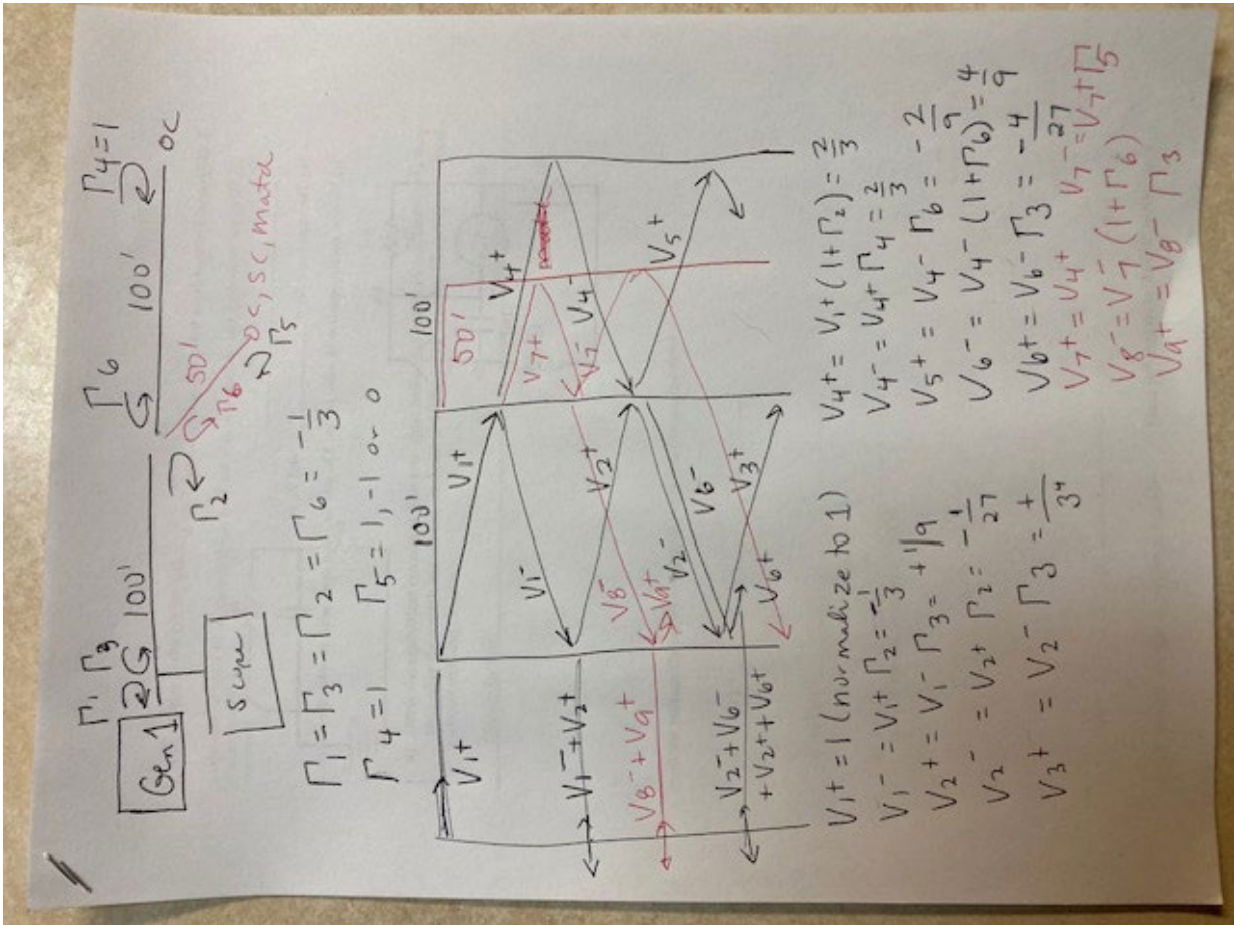 Γ₁ Γ₃
Gen 1
100'
Scope
Γ₂
Γ₆
100'
Γ₄=1
OC
50'
Γ₆
Γ₅
Γ₁ = Γ₃ = Γ₂ = Γ₆ = -1/3
Γ₄=1 Γ₅=1,-1 or 0
100' 100'
50'
V₁+
V₁+
V₄+
V₇+
V₁-
V₄-
V₇-
V₁-+V₂+
V₈-
V₂+
V₅+
V₈-+V₉+
V₉+
V₂-
V₆-
V₂-+V₆-
+V₂++V₆+
V₆+
V₃+
V₁+ = 1 (normalize to 1)
V₁- = V₁+ Γ₂ = -1/3
V₂+ = V₁- Γ₃ = +1/9
V₂- = V₂+ Γ₂ = -1/27
V₃+ = V₂- Γ₃ = +/3⁴
V₄+ = V₁+(1+Γ₂) = 2/3
V₄- = V₄+ Γ₄ = 2/3
V₅+ = V₄- Γ₆ = -2/9
V₆- = V₄- (1+Γ₆) = 4/9
V₆+ = V₆- Γ₃ = -4/27
V₇+ = V₄+ V₇- = V₇+ Γ₅
V₈- = V₇- (1+Γ₆)
V₉+ = V₈- Γ₃